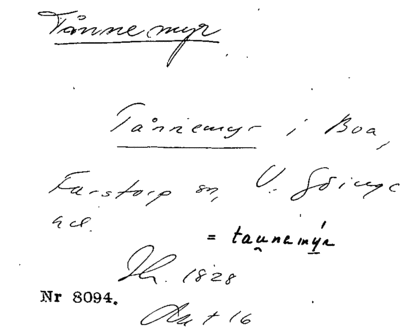 Tånnemyr
Tånnemyr i Boa,
Farstorp sn, V. Göinge
hd.
= taunemýr
1828
Nr 8094.
Akt 16